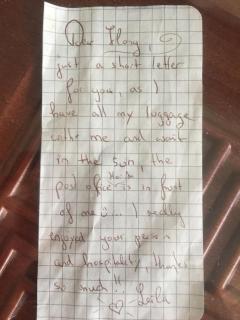 Dear Flory,
just a short letter
for you, as I
have all my luggage
withe me and wait
in the sun, the
post office is in front
of me ü... I really
enjoyed your person
and hospitality, thanks
so much!!
♡ Leila